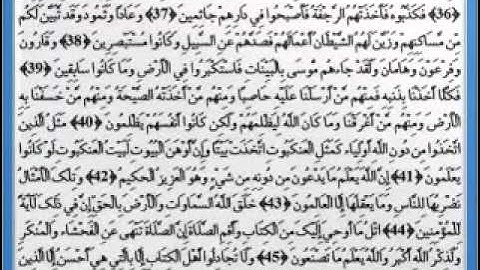 ﴿36﴾ فَكَذَّبُوهُ فَأَخَذَتْهُمُ الرَّجْفَةُ فَأَصْبَحُوا فِي دَارِهِمْ جَاثِمِينَ ﴿37﴾ وَعَادًا وَثَمُودَ وَقَد تَّبَيَّنَ لَكُم
مِّن مَّسَاكِنِهِمْ وَزَيَّنَ لَهُمُ الشَّيْطَانُ أَعْمَالَهُمْ فَصَدَّهُمْ عَنِ السَّبِيلِ وَكَانُوا مُسْتَبْصِرِينَ ﴿38﴾ وَقَارُونَ
وَفِرْعَوْنَ وَهَامَانَ وَلَقَدْ جَاءهُم مُّوسَى بِالْبَيِّنَاتِ فَاسْتَكْبَرُوا فِي الْأَرْضِ وَمَا كَانُوا سَابِقِينَ ﴿39﴾
فَكُلًّا أَخَذْنَا بِذَنبِهِ فَمِنْهُم مَّنْ أَرْسَلْنَا عَلَيْهِ حَاصِبًا وَمِنْهُم مَّنْ أَخَذَتْهُ الصَّيْحَةُ وَمِنْهُم مَّنْ خَسَفْنَا بِهِ
الْأَرْضَ وَمِنْهُم مَّنْ أَغْرَقْنَا وَمَا كَانَ اللَّهُ لِيَظْلِمَهُمْ وَلَكِن كَانُوا أَنفُسَهُمْ يَظْلِمُونَ ﴿40﴾ مَثَلُ الَّذِينَ
اتَّخَذُوا مِن دُونِ اللَّهِ أَوْلِيَاء كَمَثَلِ الْعَنكَبُوتِ اتَّخَذَتْ بَيْتًا وَإِنَّ أَوْهَنَ الْبُيُوتِ لَبَيْتُ الْعَنكَبُوتِ لَوْ كَانُوا
يَعْلَمُونَ ﴿41﴾ إِنَّ اللَّهَ يَعْلَمُ مَا يَدْعُونَ مِن دُونِهِ مِن شَيْءٍ وَهُوَ الْعَزِيزُ الْحَكِيمُ ﴿42﴾ وَتِلْكَ الْأَمْثَالُ
نَضْرِبُهَا لِلنَّاسِ وَمَا يَعْقِلُهَا إِلَّا الْعَالِمُونَ ﴿43﴾ خَلَقَ اللَّهُ السَّمَاوَاتِ وَالْأَرْضَ بِالْحَقِّ إِنَّ فِي ذَلِكَ لَآيَةً
لِّلْمُؤْمِنِينَ ﴿44﴾ اتْلُ مَا أُوحِيَ إِلَيْكَ مِنَ الْكِتَابِ وَأَقِمِ الصَّلَاةَ إِنَّ الصَّلَاةَ تَنْهَى عَنِ الْفَحْشَاء وَالْمُنكَرِ
وَلَذِكْرُ اللَّهِ أَكْبَرُ وَاللَّهُ يَعْلَمُ مَا تَصْنَعُونَ ﴿45﴾ وَلَا تُجَادِلُوا أَهْلَ الْكِتَابِ إِلَّا بِالَّتِي هِيَ أَحْسَنُ إِلَّا الَّذِينَ